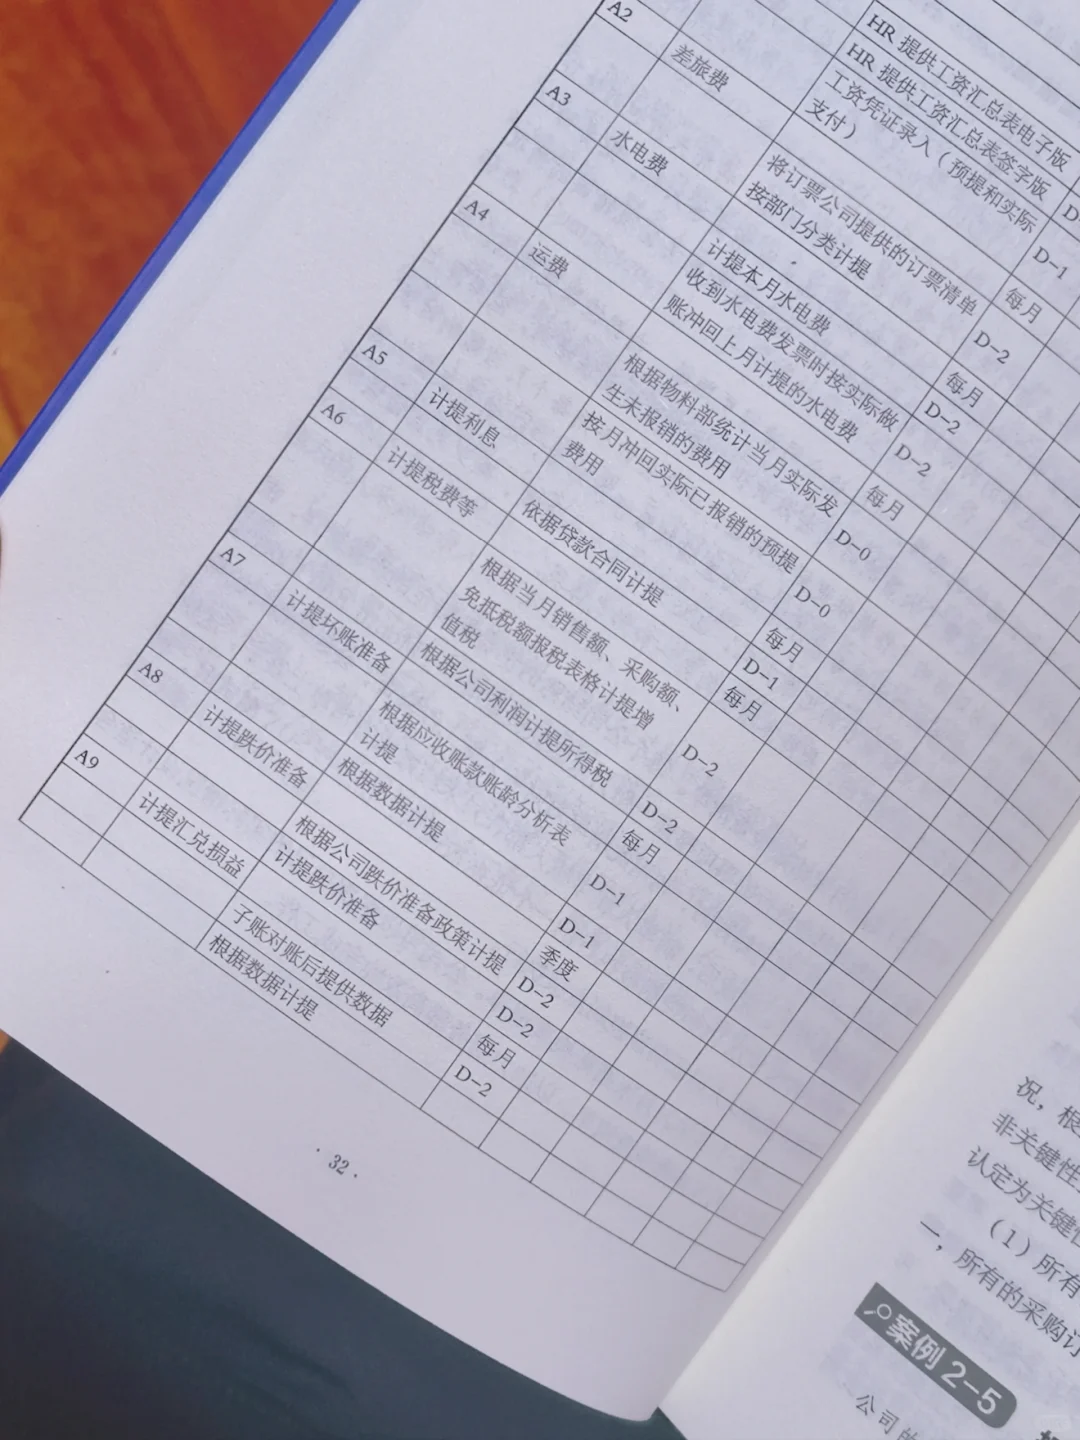 HR 提供工资汇总表电子版
HR 提供工资汇总表签字版
工资凭证录入（预提和实际
支付）
D-1
A2 差旅费 每月
将订票公司提供的订票清单
按部门分类计提
D-2
A3 水电费 每月
计提本月水电费 D-2
收到水电费发票时按实际做
账冲回上月计提的水电费
D-2
A4 运费 每月
根据物料部统计当月实际发
生未报销的费用
D-0
按月冲回实际已报销的预提
费用
D-0
A5 计提利息 每月
依据贷款合同计提 D-1
A6 计提税费等 每月
根据当月销售额、采购额、
免抵税额报税表格计提增
值税
D-2
根据公司利润计提所得税 D-2
A7 计提坏账准备 每月
根据应收账款账龄分析表
计提
D-1
根据数据计提 D-1
A8 计提跌价准备 季度
根据公司跌价准备政策计提 D-2
计提跌价准备 D-2
A9 计提汇兑损益 每月
子账对账后提供数据 D-2
根据数据计提
· 32 ·
况，根
非关键性
认定为关键性
（1）所有
一，所有的采购订
案例 2-5
公司的